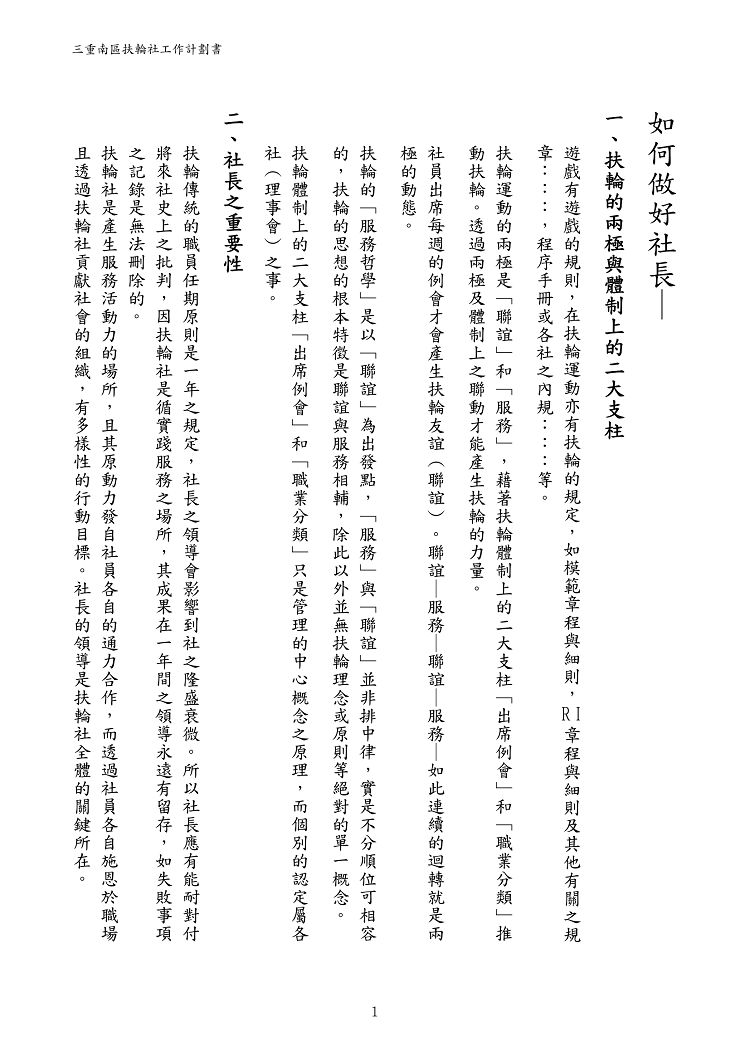 三重南區扶輪社工作計劃書
如何做好社長—
一、扶輪的兩極與體制上的二大支柱
遊戲有遊戲的規則，在扶輪運動亦有扶輪的規定，如模範章程與細則，RI章程與細則及其他有關之規
章：：：，程序手冊或各社之內規：：：等。
扶輪運動的兩極是「聯誼」和「服務」，藉著扶輪體制上的二大支柱「出席例會」和「職業分類」推
動扶輪。透過兩極及體制上之聯動才能產生扶輪的力量。
社員出席每週的例會才會產生扶輪友誼（聯誼）。聯誼—服務—聯誼—服務—如此連續的迴轉就是兩
極的動態。
扶輪的「服務哲學」是以「聯誼」為出發點，「服務」與「聯誼」並非排中律，實是不分順位可相容
的，扶輪的思想的根本特徵是聯誼與服務相輔，除此以外並無扶輪理念或原則等絕對的單一概念。
扶輪體制上的二大支柱「出席例會」和「職業分類」只是管理的中心概念之原理，而個別的認定屬各
社（理事會）之事。
二、社長之重要性
扶輪傳統的職員任期原則是一年之規定，社長之領導會影響到社之隆盛衰微。所以社長應有能耐對付
將來社史上之批判，因扶輪社是循實踐服務之場所，其成果在一年間之領導永遠有留存，如失敗事項
之記錄是無法刪除的。
扶輪社是產生服務活動力的場所，且其原動力發自社員各自的通力合作，而透過社員各自施恩於職場
且透過扶輪社貢獻社會的組織，有多樣性的行動目標。社長的領導是扶輪社全體的關鍵所在。
1